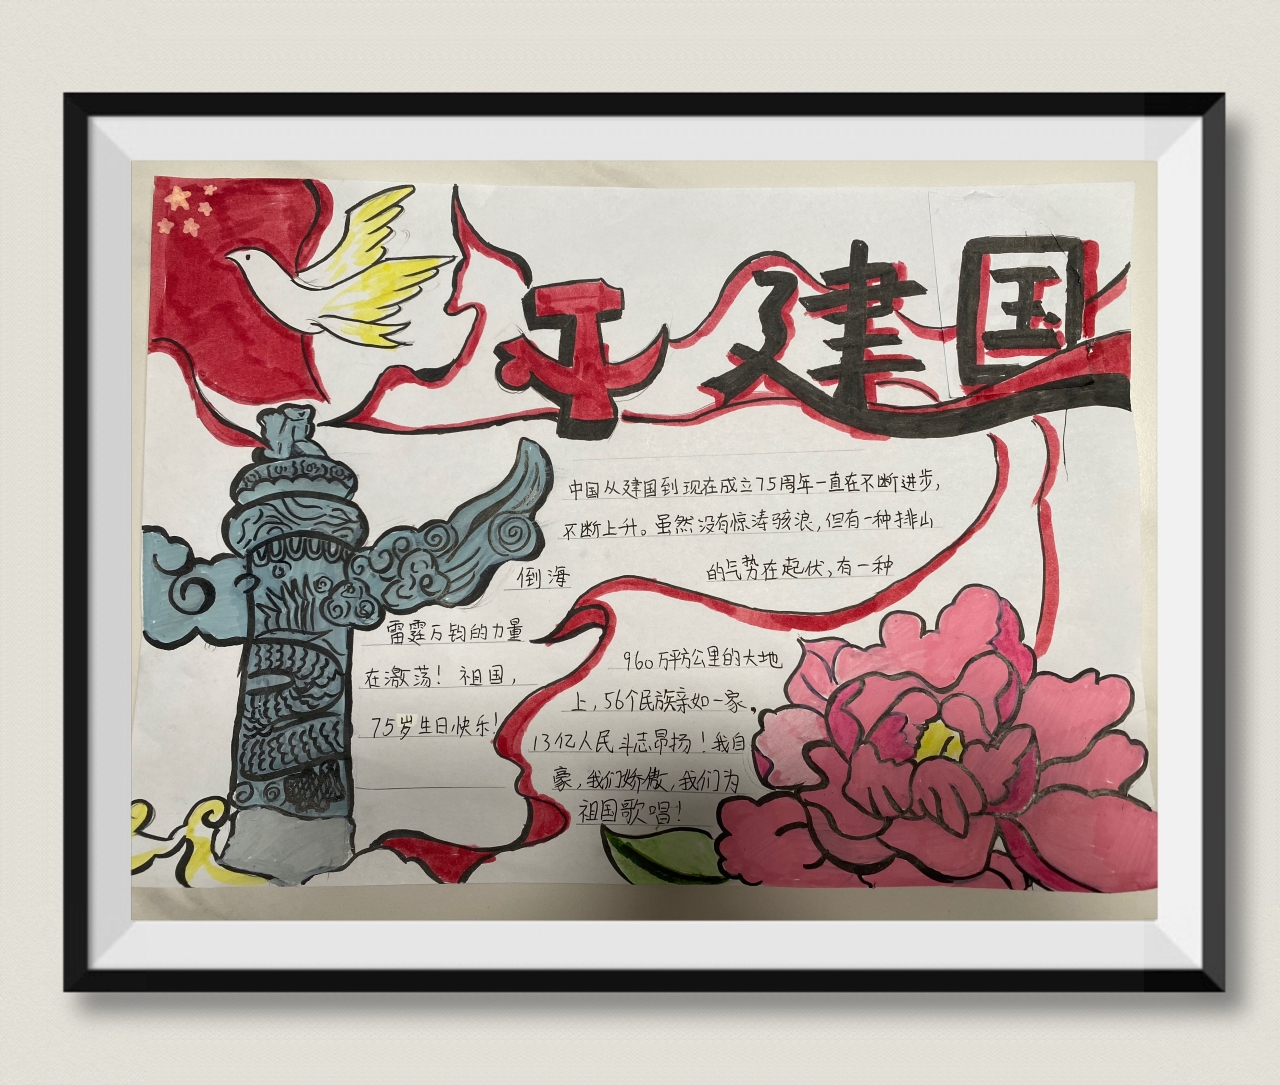 建国
中国从建国到现在成立75周年一直在不断进步,
不断上升。虽然没有惊涛骇浪,但有一种排山
倒海 的气势在起伏,有一种
雷霆万钧的力量
在激荡!祖国,
75岁生日快乐!
960万平方公里的大地
上,56个民族亲如一家,
13亿人民斗志昂扬!我自
豪,我们娇傲,我们为
祖国歌唱!